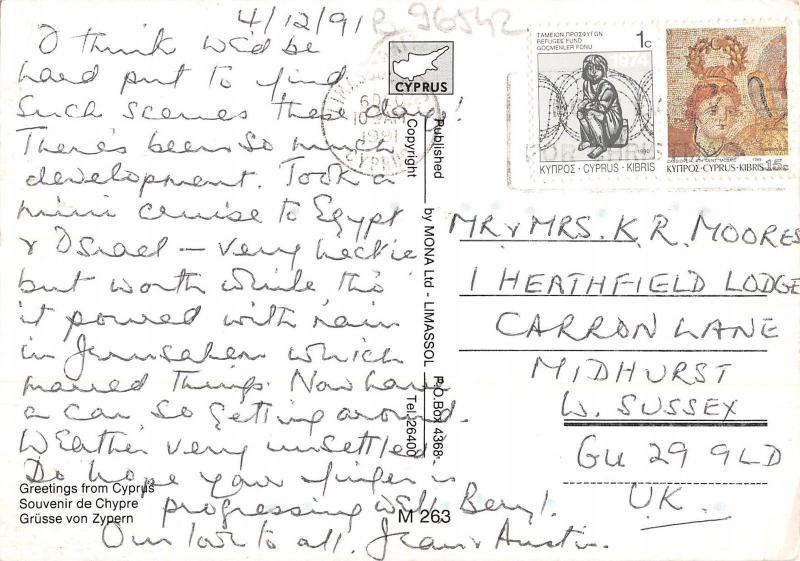 4/12/91
B 96542
I think we'd be
hard put to find
such scenes these days!
There's been so much
development. Took a
mini cruise to Egypt
& Israel – very hectic
but worth while tho'
it poured with rain
in Jerusalem which
marred things. Now have
a car so getting around.
Weather very unsettled.
Do hope your finger is
progressing well Beryl.
Our love to all. Jean & Austin.
Greetings from Cyprus
Souvenir de Chypre
Grüsse von Zypern
CYPRUS
Published by MONA Ltd - LIMASSOL P.O.Box 4368-
Copyright Tel.26400
M 263
LIMASSOL
6 DE
10 AM
1991
CYPRUS
ΤΑΜΕΙΟΝ ΠΡΟΣΦΥΓΩΝ
REFUGEE FUND
GÖÇMENLER FONU
1c
1974
1990
ΚΥΠΡΟΣ · CYPRUS · KIBRIS
1989
ΚΥΠΡΟΣ·CYPRUS·KIBRIS 15c
MR & MRS. K. R. MOORES
1 HEATHFIELD LODGE
CARRON LANE
MIDHURST
W. SUSSEX
GU 29 9LD
UK.